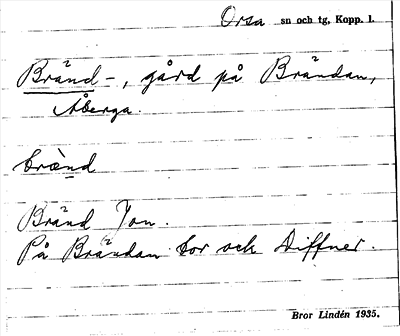 Orsa sn och tg, Kopp. l.
Bränd-, gård på Brändan,
Åberga.
brä̀nd
Bränd Jon.
På Brändan bor och Diffner.
Bror Lindén 1935.